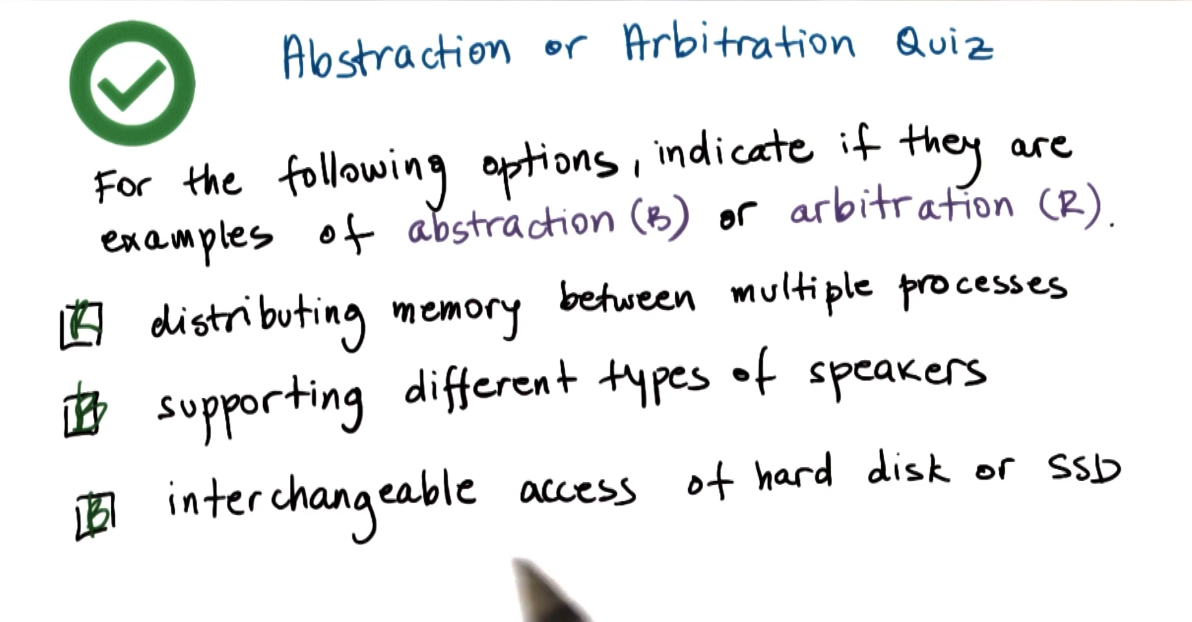 Abstraction or Arbitration Quiz
For the following options, indicate if they are
examples of abstraction (B) or arbitration (R).
R distributing memory between multiple processes
B supporting different types of speakers
B interchangeable access of hard disk or SSD